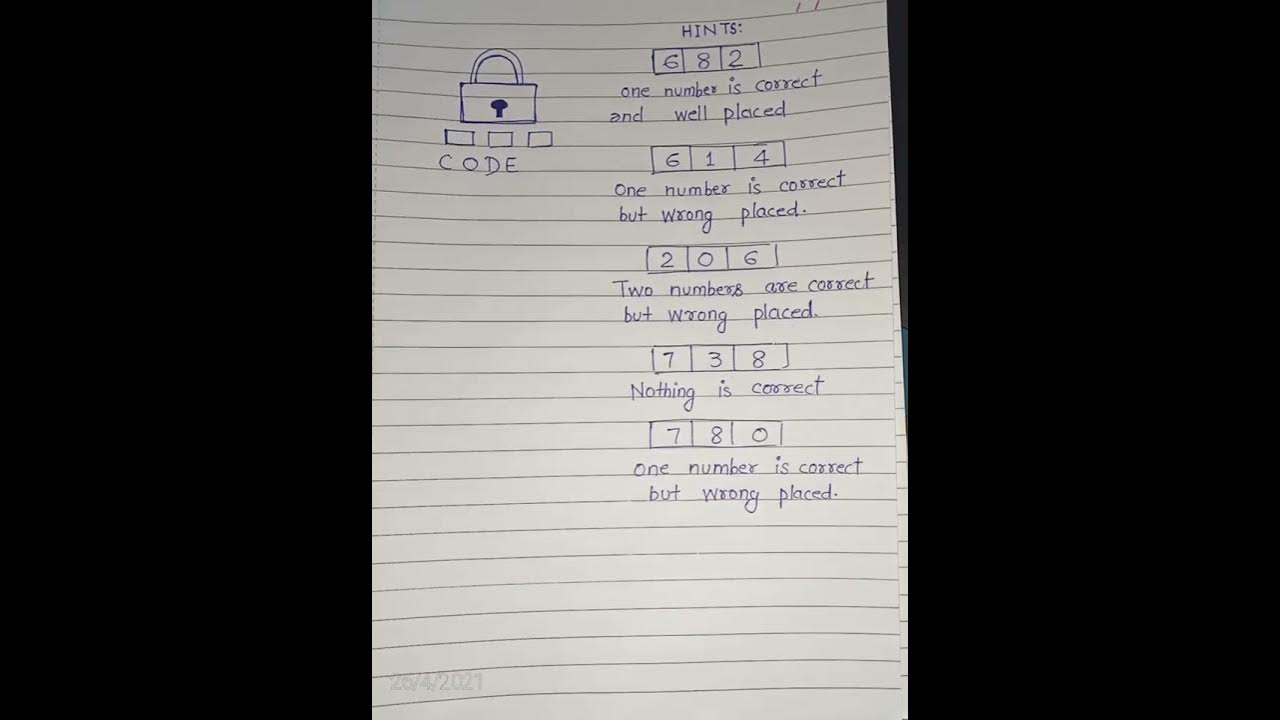 HINTS:
6 8 2
one number is correct
and well placed
CODE
6 1 4
One number is correct
but wrong placed.
2 0 6
Two numbers are correct
but wrong placed.
7 3 8
Nothing is correct
7 8 0
one number is correct
but wrong placed.
26/4/2021